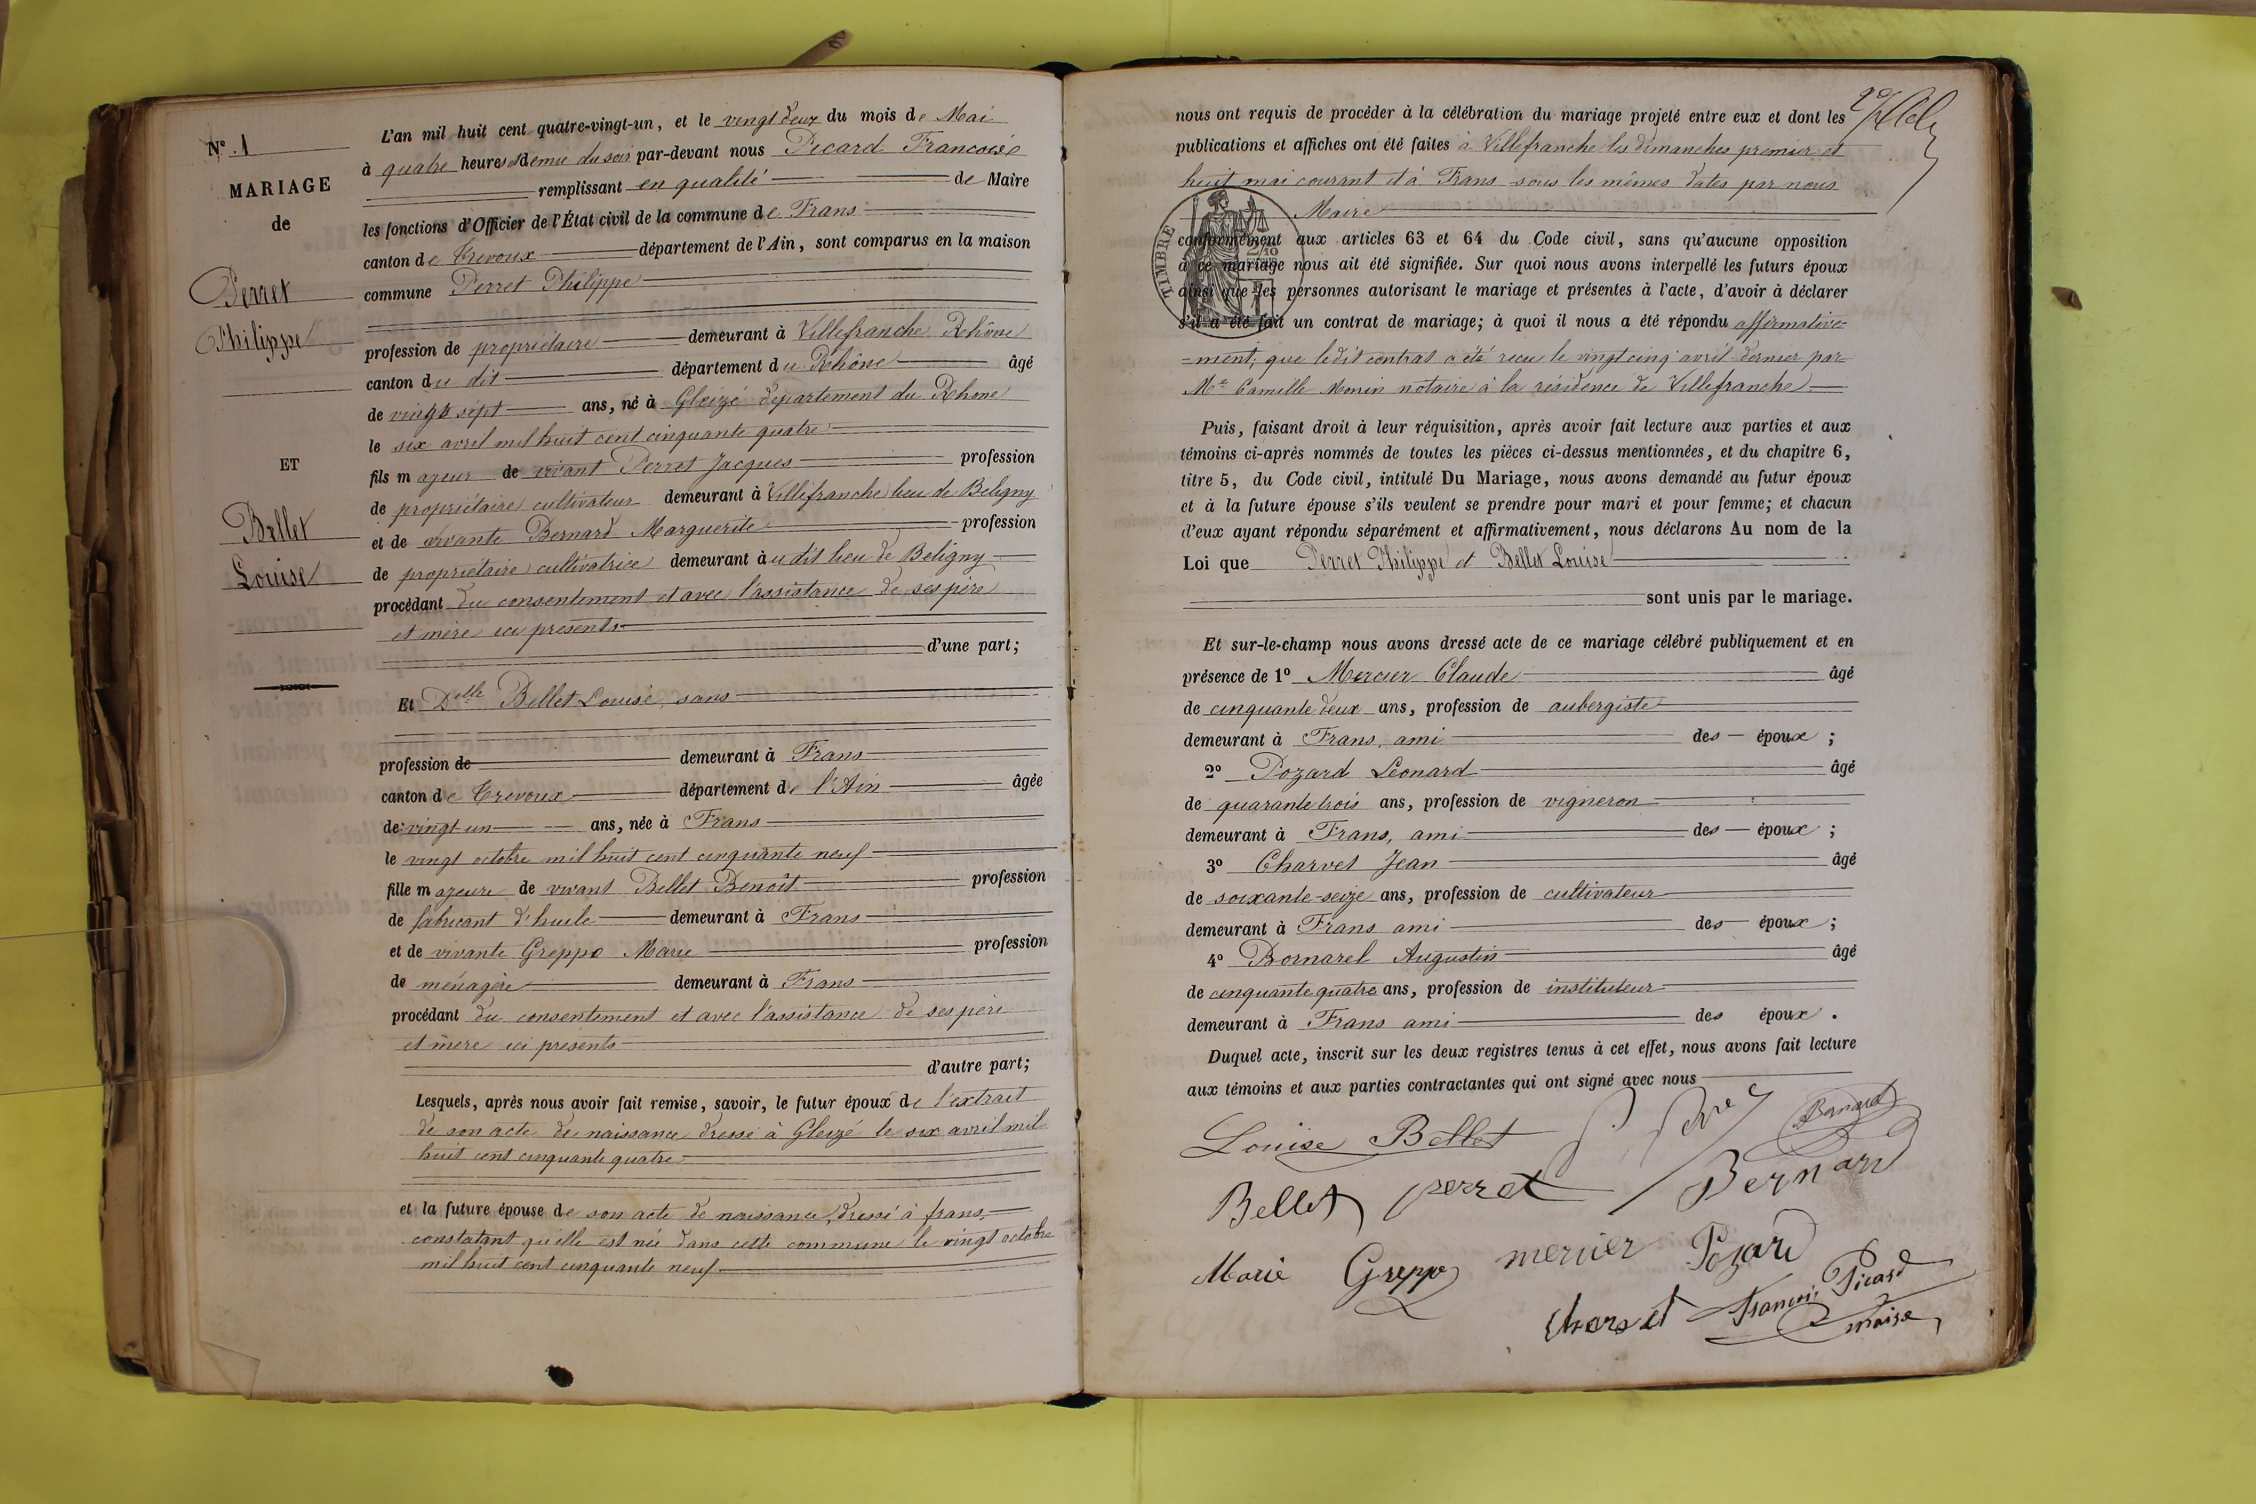 N° 1
MARIAGE
de
Perret
Philippe
ET
Bellet
Louise
L'an mil huit cent quatre-vingt-un, et le vingt deux du mois de Mai
à quatre heures et demie du soir par-devant nous Picard Francois
remplissant en qualité de Maire
les fonctions d'Officier de l'État civil de la commune de Frans
canton de Trevoux département de l'Ain, sont comparus en la maison
commune Perret Philippe
profession de propriétaire demeurant à Villefranche Rhône
canton du dit département du Rhône âgé
de vingt sept ans, né à Gleizé département du Rhone
le six avril mil huit cent cinquante quatre
fils majeur de vivant Perret Jacques profession
de propriétaire cultivateur demeurant à Villefranche lieu de Beligny
et de vivante Bernard Marguerite profession
de propriétaire cultivatrice demeurant à u dit lieu de Beligny
procédant du consentement et avec l'assistance de ses père
et mère ici présents
d'une part;
Et Delle Bellet Louise, sans
profession de demeurant à Frans
canton de Trevoux département de l'Ain âgée
de vingt un ans, née à Frans
le vingt octobre mil huit cent cinquante neuf
fille majeure de vivant Bellet Benoît profession
de fabricant d'huile demeurant à Frans
et de vivante Greppo Marie profession
de ménagère demeurant à Frans
procédant du consentement et avec l'assistance de ses père
et mère ici présents
d'autre part;
Lesquels, après nous avoir fait remise, savoir, le futur époux de l'extrait
de son acte de naissance dressé à Gleizé le six avril mil
huit cent cinquante quatre
et la future épouse de son acte de naissance, dressé à frans,
constatant qu'elle est née dans cette commune le vingt octobre
mil huit cent cinquante neuf
nous ont requis de procéder à la célébration du mariage projeté entre eux et dont les
publications et affiches ont été faites à Villefranche les dimanches premier et
huit mai courant et à Frans sous les mêmes dates par nous
Maire
TIMBRE
conformément aux articles 63 et 64 du Code civil, sans qu'aucune opposition
à ce mariage nous ait été signifiée. Sur quoi nous avons interpellé les futurs époux
ainsi que les personnes autorisant le mariage et présentes à l'acte, d'avoir à déclarer
s'il a été fait un contrat de mariage; à quoi il nous a été répondu affirmative=
=ment, que ledit contrat a été recu le vingt cinq avril dernier par
Me Camille Monin notaire à la résidence de Villefranche
Puis, faisant droit à leur réquisition, après avoir fait lecture aux parties et aux
témoins ci-après nommés de toutes les pièces ci-dessus mentionnées, et du chapitre 6,
titre 5, du Code civil, intitulé Du Mariage, nous avons demandé au futur époux
et à la future épouse s'ils veulent se prendre pour mari et pour femme; et chacun
d'eux ayant répondu séparément et affirmativement, nous déclarons Au nom de la
Loi que Perret Philippe et Bellet Louise
sont unis par le mariage.
Et sur-le-champ nous avons dressé acte de ce mariage célébré publiquement et en
présence de 1° Mercier Claude âgé
de cinquante deux ans, profession de aubergiste
demeurant à Frans, ami des époux ;
2° Pozard Leonard âgé
de quarante trois ans, profession de vigneron
demeurant à Frans, ami des époux ;
3° Charvet Jean âgé
de soixante-seize ans, profession de cultivateur
demeurant à Frans ami des époux ;
4° Bornarel Augustin âgé
de cinquante quatre ans, profession de instituteur
demeurant à Frans ami des époux .
Duquel acte, inscrit sur les deux registres tenus à cet effet, nous avons fait lecture
aux témoins et aux parties contractantes qui ont signé avec nous
Louise Bellet
Bellet perret Bernard
Marie Greppo mercier Pozard
Charvet François Picard
maire